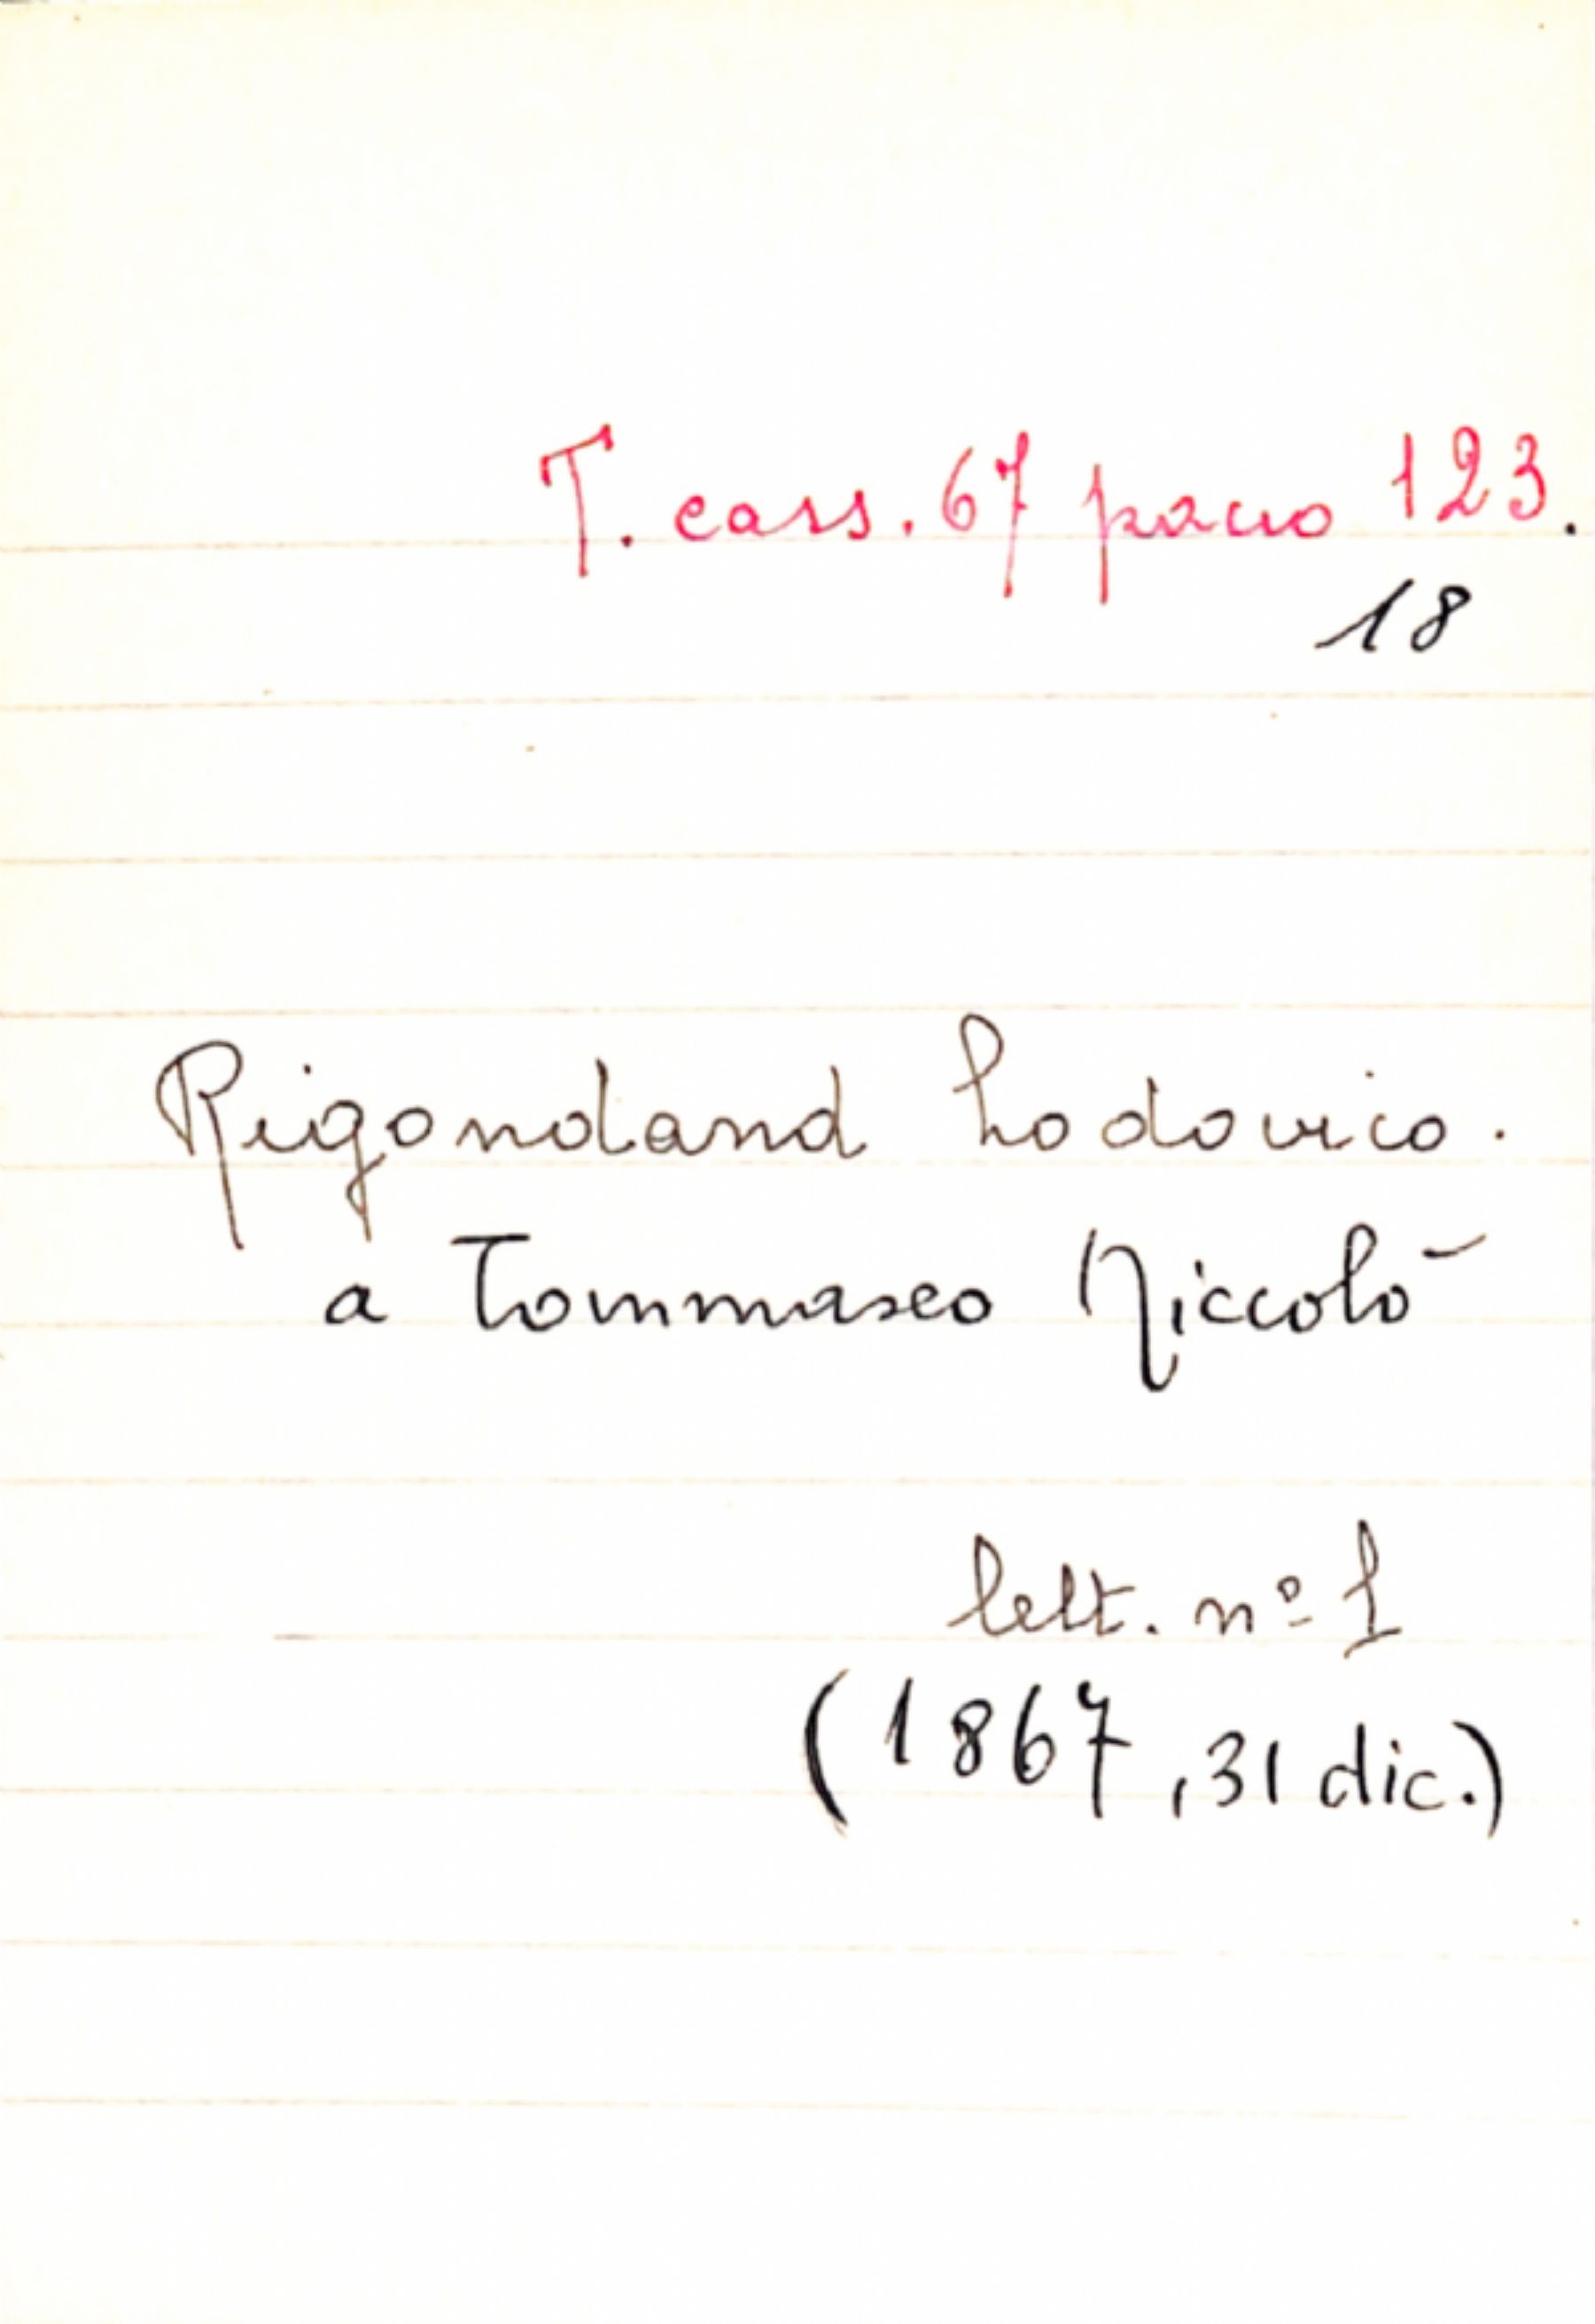 T. cass. 67 pacco 123.
18
Rigondaud Lodovico.
a Tommaseo Niccolò
lett. nº 1
(1867, 31 dic.)